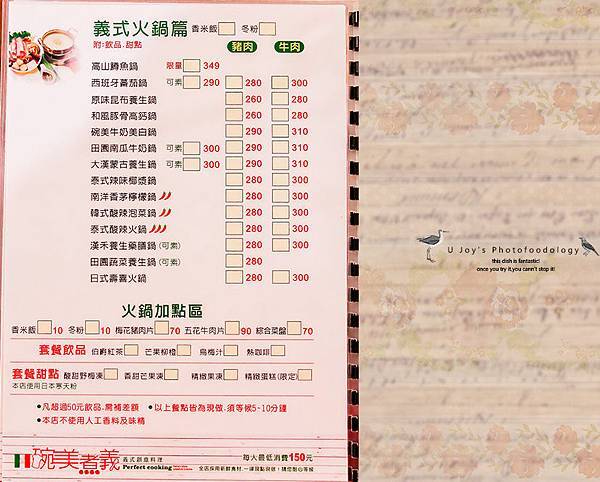 義式火鍋篇 香米飯 冬粉
附:飲品.甜點 豬肉 牛肉
高山鱒魚鍋 限量 349
西班牙蕃茄鍋 可素 290 280 300
原味昆布養生鍋 260 280
和風豚骨高鈣鍋 260 280
碗美牛奶美白鍋 290 310
田園南瓜牛奶鍋 可素 300 290 310
大漠蒙古養生鍋 可素 300 290 310
泰式辣味椰漿鍋 280 300
南洋香茅檸檬鍋 280 300
韓式酸辣泡菜鍋 280 300
泰式酸辣火鍋 280 300
漢禾養生藥膳鍋(可素) 280 300
田園蔬菜養生鍋(可素) 280
日式壽喜火鍋 280 300
火鍋加點區
香米飯 10 冬粉 10 梅花豬肉片 70 五花牛肉片 90 綜合菜盤 70
套餐飲品 伯爵紅茶 芒果柳橙 烏梅汁 熱咖啡
套餐甜點 酸甜野梅凍 香甜芒果凍 精緻果凍 精緻蛋糕(限定)
本店使用日本寒天粉
•凡超過50元飲品,需補差額 •以上餐點皆為現做,須等候5-10分鐘
•本店不使用人工香料及味精
碗美者義 義式創意料理 每人最低消費150元
Perfect cooking 全店採用新鮮食材,一律現點現做!請您耐心等候
U Joy's Photofoodology
this dish is fantastic!
once you try it,you cann't stop it!